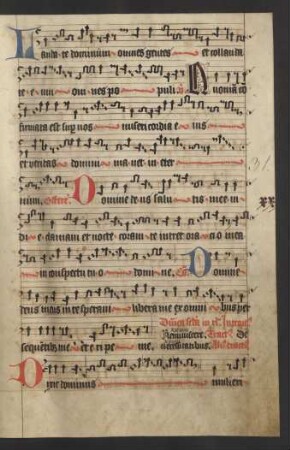 Lauda te dominum omnes gentes et collauda
te e um om nes po puli. V Quoniam co
firmata est sup nos misericordia e ius
et veritas domini ma net in eter
num. Offert. Domine de us salu tis me e in
di e clamavi et nocte coram te intret ora ci o mea
in conspectu tu o domi ne. Co. Domine
deus meus in te speravi libera me ex omni bus per
sequentib me et e ri pe me.
Dixit dominus mulieri
31
XX